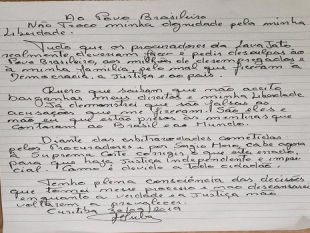 Ao Povo Brasileiro
Não Troco minha dignidade pela minha
Liberdade.
Tudo que os procuradores da Lava Jato
realmente deveriam fazer é pedir desculpas ao
Povo Brasileiro, aos milhões de desempregados e
a minha família, pelo mal que fizeram a
Democracia, a Justiça e ao país.
Quero que saibam que não aceito
barganhar meus direitos e minha Liberdade.
Já demonstrei que são falsas as
acusações que me fizeram. São eles e
não eu que estão presos às mentiras que
contaram ao Brasil e ao Mundo.
Diante das arbitrariedades cometidas
pelos Procuradores e por Sergio Moro, cabe agora
a Suprema Corte corrigir o que está errado,
para que haja Justiça independente e impar
cial. Como é devido a todo cidadão.
Tenho plena consciência das decisões
que tomei neste processo e não descansarei
enquanto a verdade e a Justiça não
voltarem a prevalecer.
Curitiba 30/09/2019